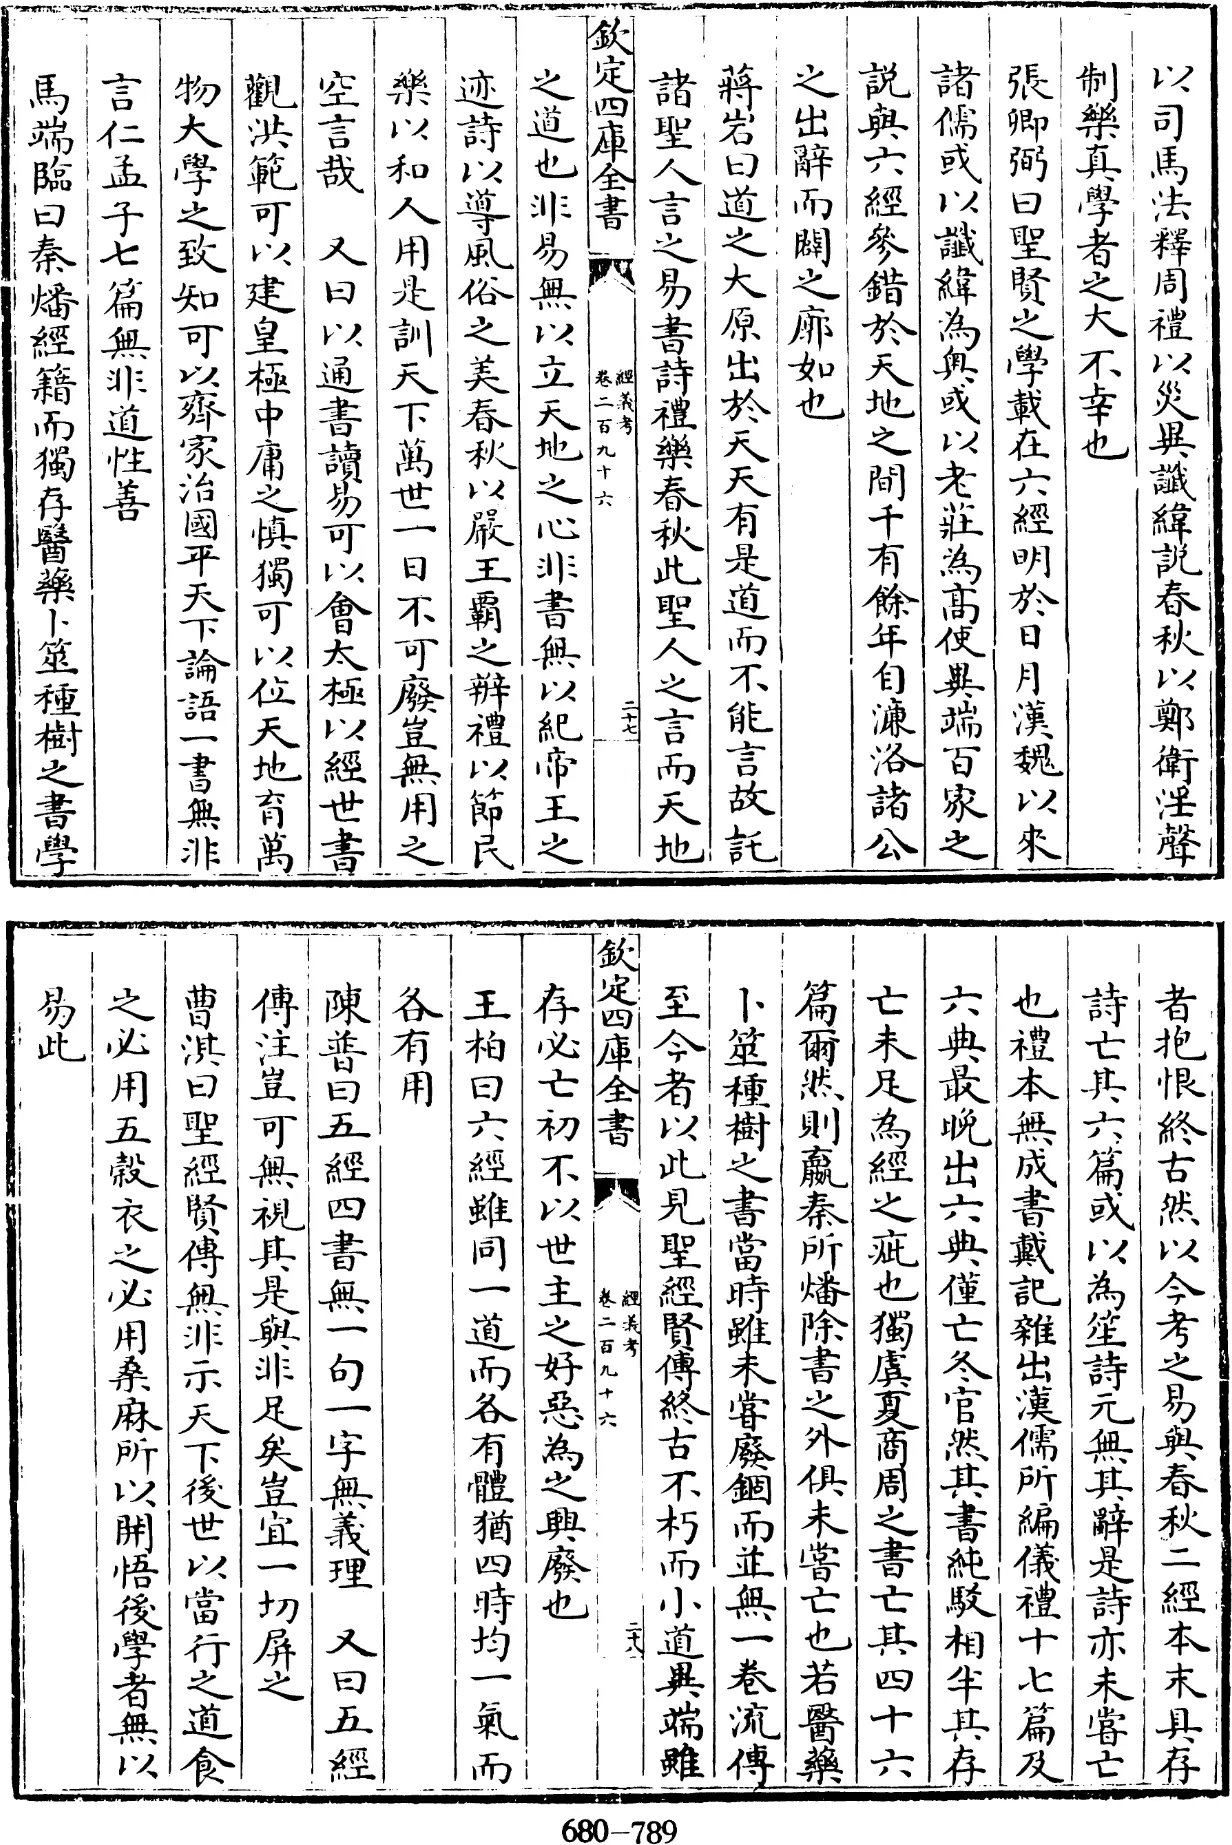 以司馬法釋周禮以災異讖緯說春秋以鄭衛淫聲
制樂真學者之大不幸也
張卿弼曰聖賢之學載在六經明於日月漢魏以來
諸儒或以讖緯為奥或以老莊為髙使異端百家之
說與六經參錯於天地之間千有餘年自濓洛諸公
之出辭而闢之廓如也
蔣岩曰道之大原出於天天有是道而不能言故託
諸聖人言之易書詩禮樂春秋此聖人之言而天地
欽定四庫全書
經義考
卷二百九十六
二十七
之道也非易無以立天地之心非書無以紀帝王之
迹詩以導風俗之美春秋以嚴王霸之辨禮以節民
樂以和人用是訓天下萬世一日不可廢豈無用之
空言哉 又曰以通書讀易可以會太極以經世書
觀洪範可以建皇極中庸之慎獨可以位天地育萬
物大學之致知可以齊家治國平天下論語一書無非
言仁孟子七篇無非道性善
馬端臨曰秦燔經籍而獨存醫藥卜筮種樹之書學
者抱恨終古然以今考之易與春秋二經本末具存
詩亡其六篇或以為笙詩元無其辭是詩亦未嘗亡
也禮本無成書戴記雜出漢儒所編儀禮十七篇及
六典最晩出六典僅亡冬官然其書純駁相半其存
亡未足為經之疵也獨虞夏商周之書亡其四十六
篇爾然則嬴秦所燔除書之外俱未嘗亡也若醫藥
卜筮種樹之書當時雖未嘗廢錮而並無一卷流傳
至今者以此見聖經賢傳終古不朽而小道異端雖
欽定四庫全書
經義考
卷二百九十六
二十八
存必亡初不以世主之好惡為之興廢也
王柏曰六經雖同一道而各有體猶四時均一氣而
各有用
陳普曰五經四書無一句一字無義理 又曰五經
傳注豈可無視其是與非足矣豈宜一切屏之
曹淇曰聖經賢傳無非示天下後世以當行之道食
之必用五榖衣之必用桑麻所以開悟後學者無以
易此
680-789